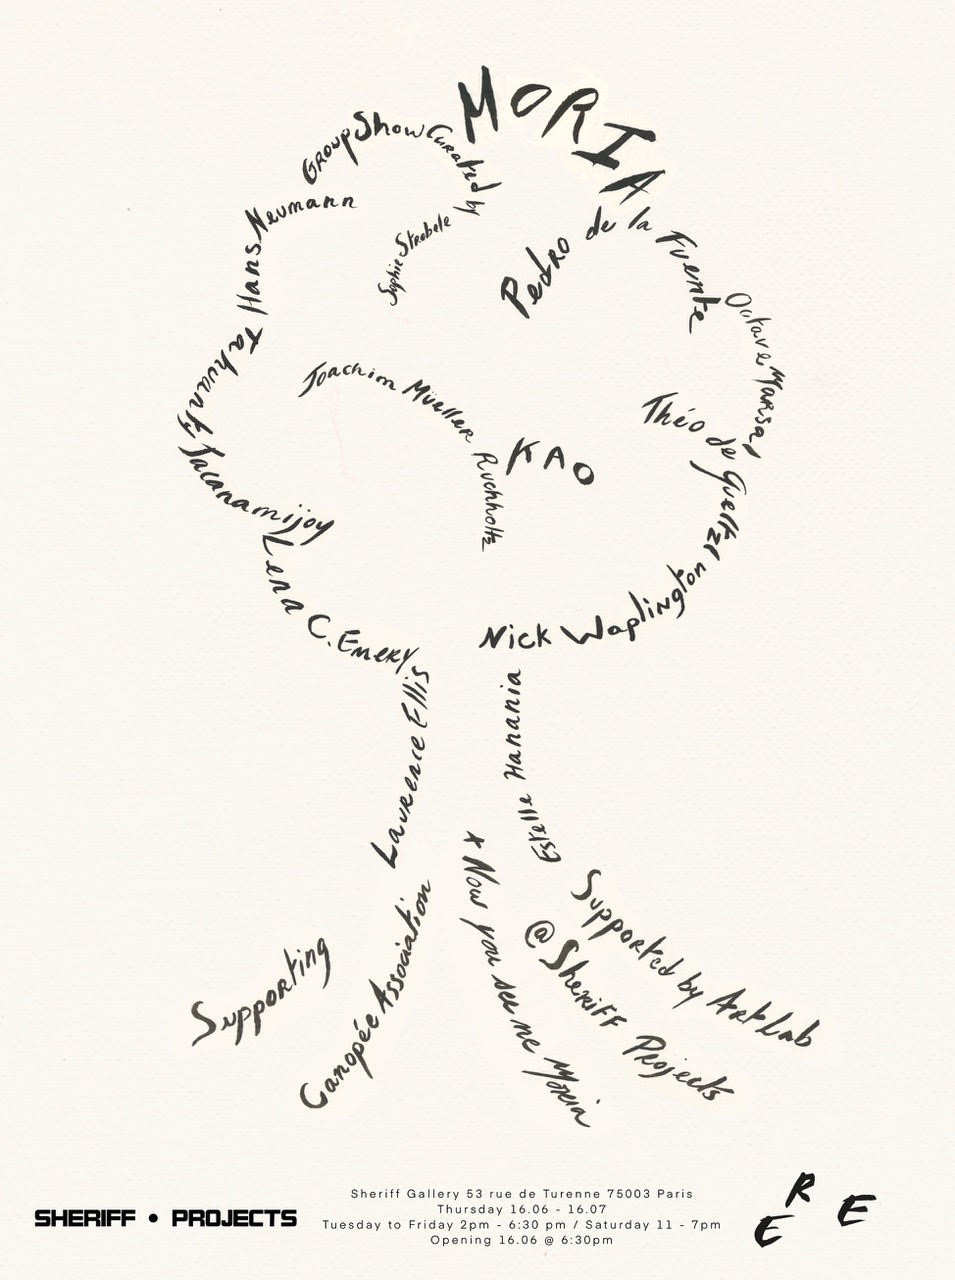 MORIA
Group Show Curated by
Sophie Strobele
Hans Neumann
Pedro de la Fuente
Octave Marsal
Tahuanty Jacanamijoy
Joachim Müeller Ruchholtz
KAO
Théo de Gueltzl
Lena C. Emery
Nick Waplington
Laurence Ellis
Estelle Hanania
Supporting
Canopée Association
+ Now you see me Moria
@ Sheriff Projects
Supported by ArtLab
SHERIFF • PROJECTS
Sheriff Gallery 53 rue de Turenne 75003 Paris
Thursday 16.06 - 16.07
Tuesday to Friday 2pm - 6:30 pm / Saturday 11 - 7pm
Opening 16.06 @ 6:30pm
ERE